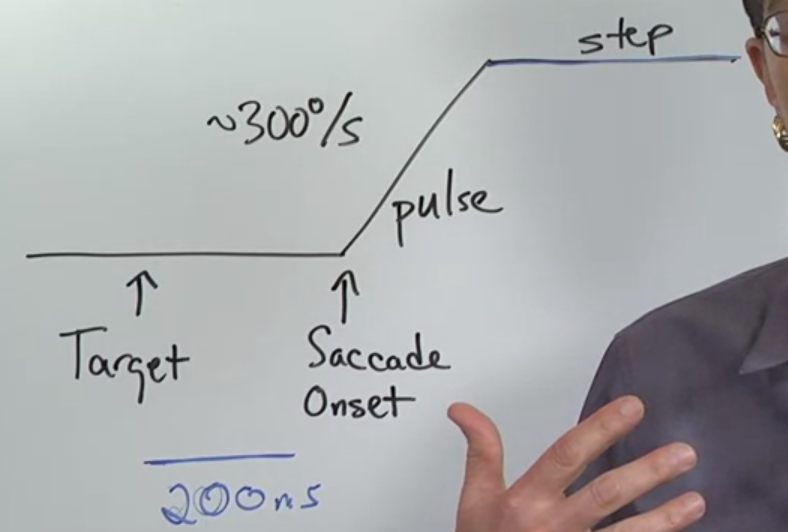 step
~300°/s
pulse
Target
Saccade
Onset
200ms